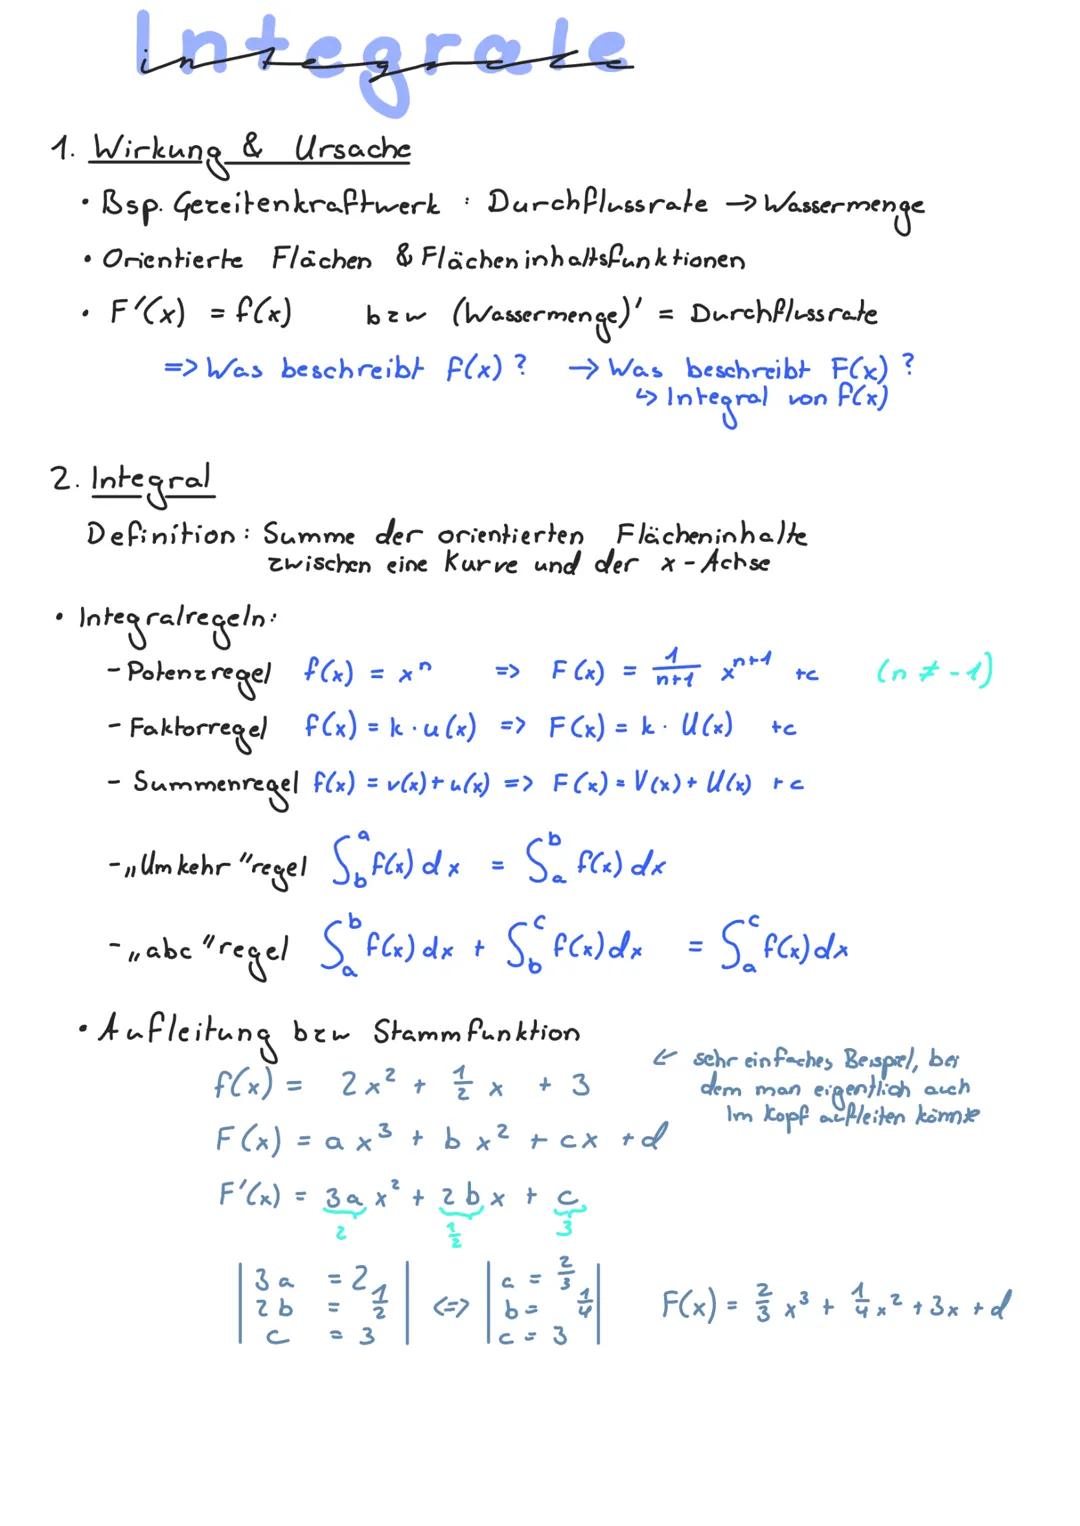 Integrale
integrale
1. Wirkung & Ursache
• Bsp. Gezeitenkraftwerk : Durchflussrate → Wassermenge
• Orientierte Flächen & Flächeninhaltsfunktionen
• F'(x) = f(x) bzw (Wassermenge)' = Durchflussrate
=> Was beschreibt f(x) ? → Was beschreibt F(x) ?
↳ Integral von f(x)
2. Integral
Definition : Summe der orientierten Flächeninhalte
zwischen eine Kurve und der x-Achse
• Integralregeln:
- Potenzregel f(x) = x^n => F(x) = 1/(n+1) x^(n+1) +c (n ≠ -1)
- Faktorregel f(x) = k · u(x) => F(x) = k · U(x) +c
- Summenregel f(x) = v(x) + u(x) => F(x) = V(x) + U(x) + c
- „Umkehr"regel ∫_b^a f(x) dx = ∫_a^b f(x) dx
- „abc"regel ∫_a^b f(x) dx + ∫_b^c f(x) dx = ∫_a^c f(x) dx
• Aufleitung bzw Stammfunktion
f(x) = 2x² + 1/2 x + 3
← sehr einfaches Beispiel, bei
dem man eigentlich auch
Im Kopf aufleiten könnte
F(x) = ax³ + bx² + cx + d
F'(x) = 3a x² + 2b x + c
2 1/2 3
| 3a = 2 | <=> | a = 2/3 |
| 2b = 1/2 | | b = 1/4 | F(x) = 2/3 x³ + 1/4 x² + 3x + d
| c = 3 | | c = 3 |